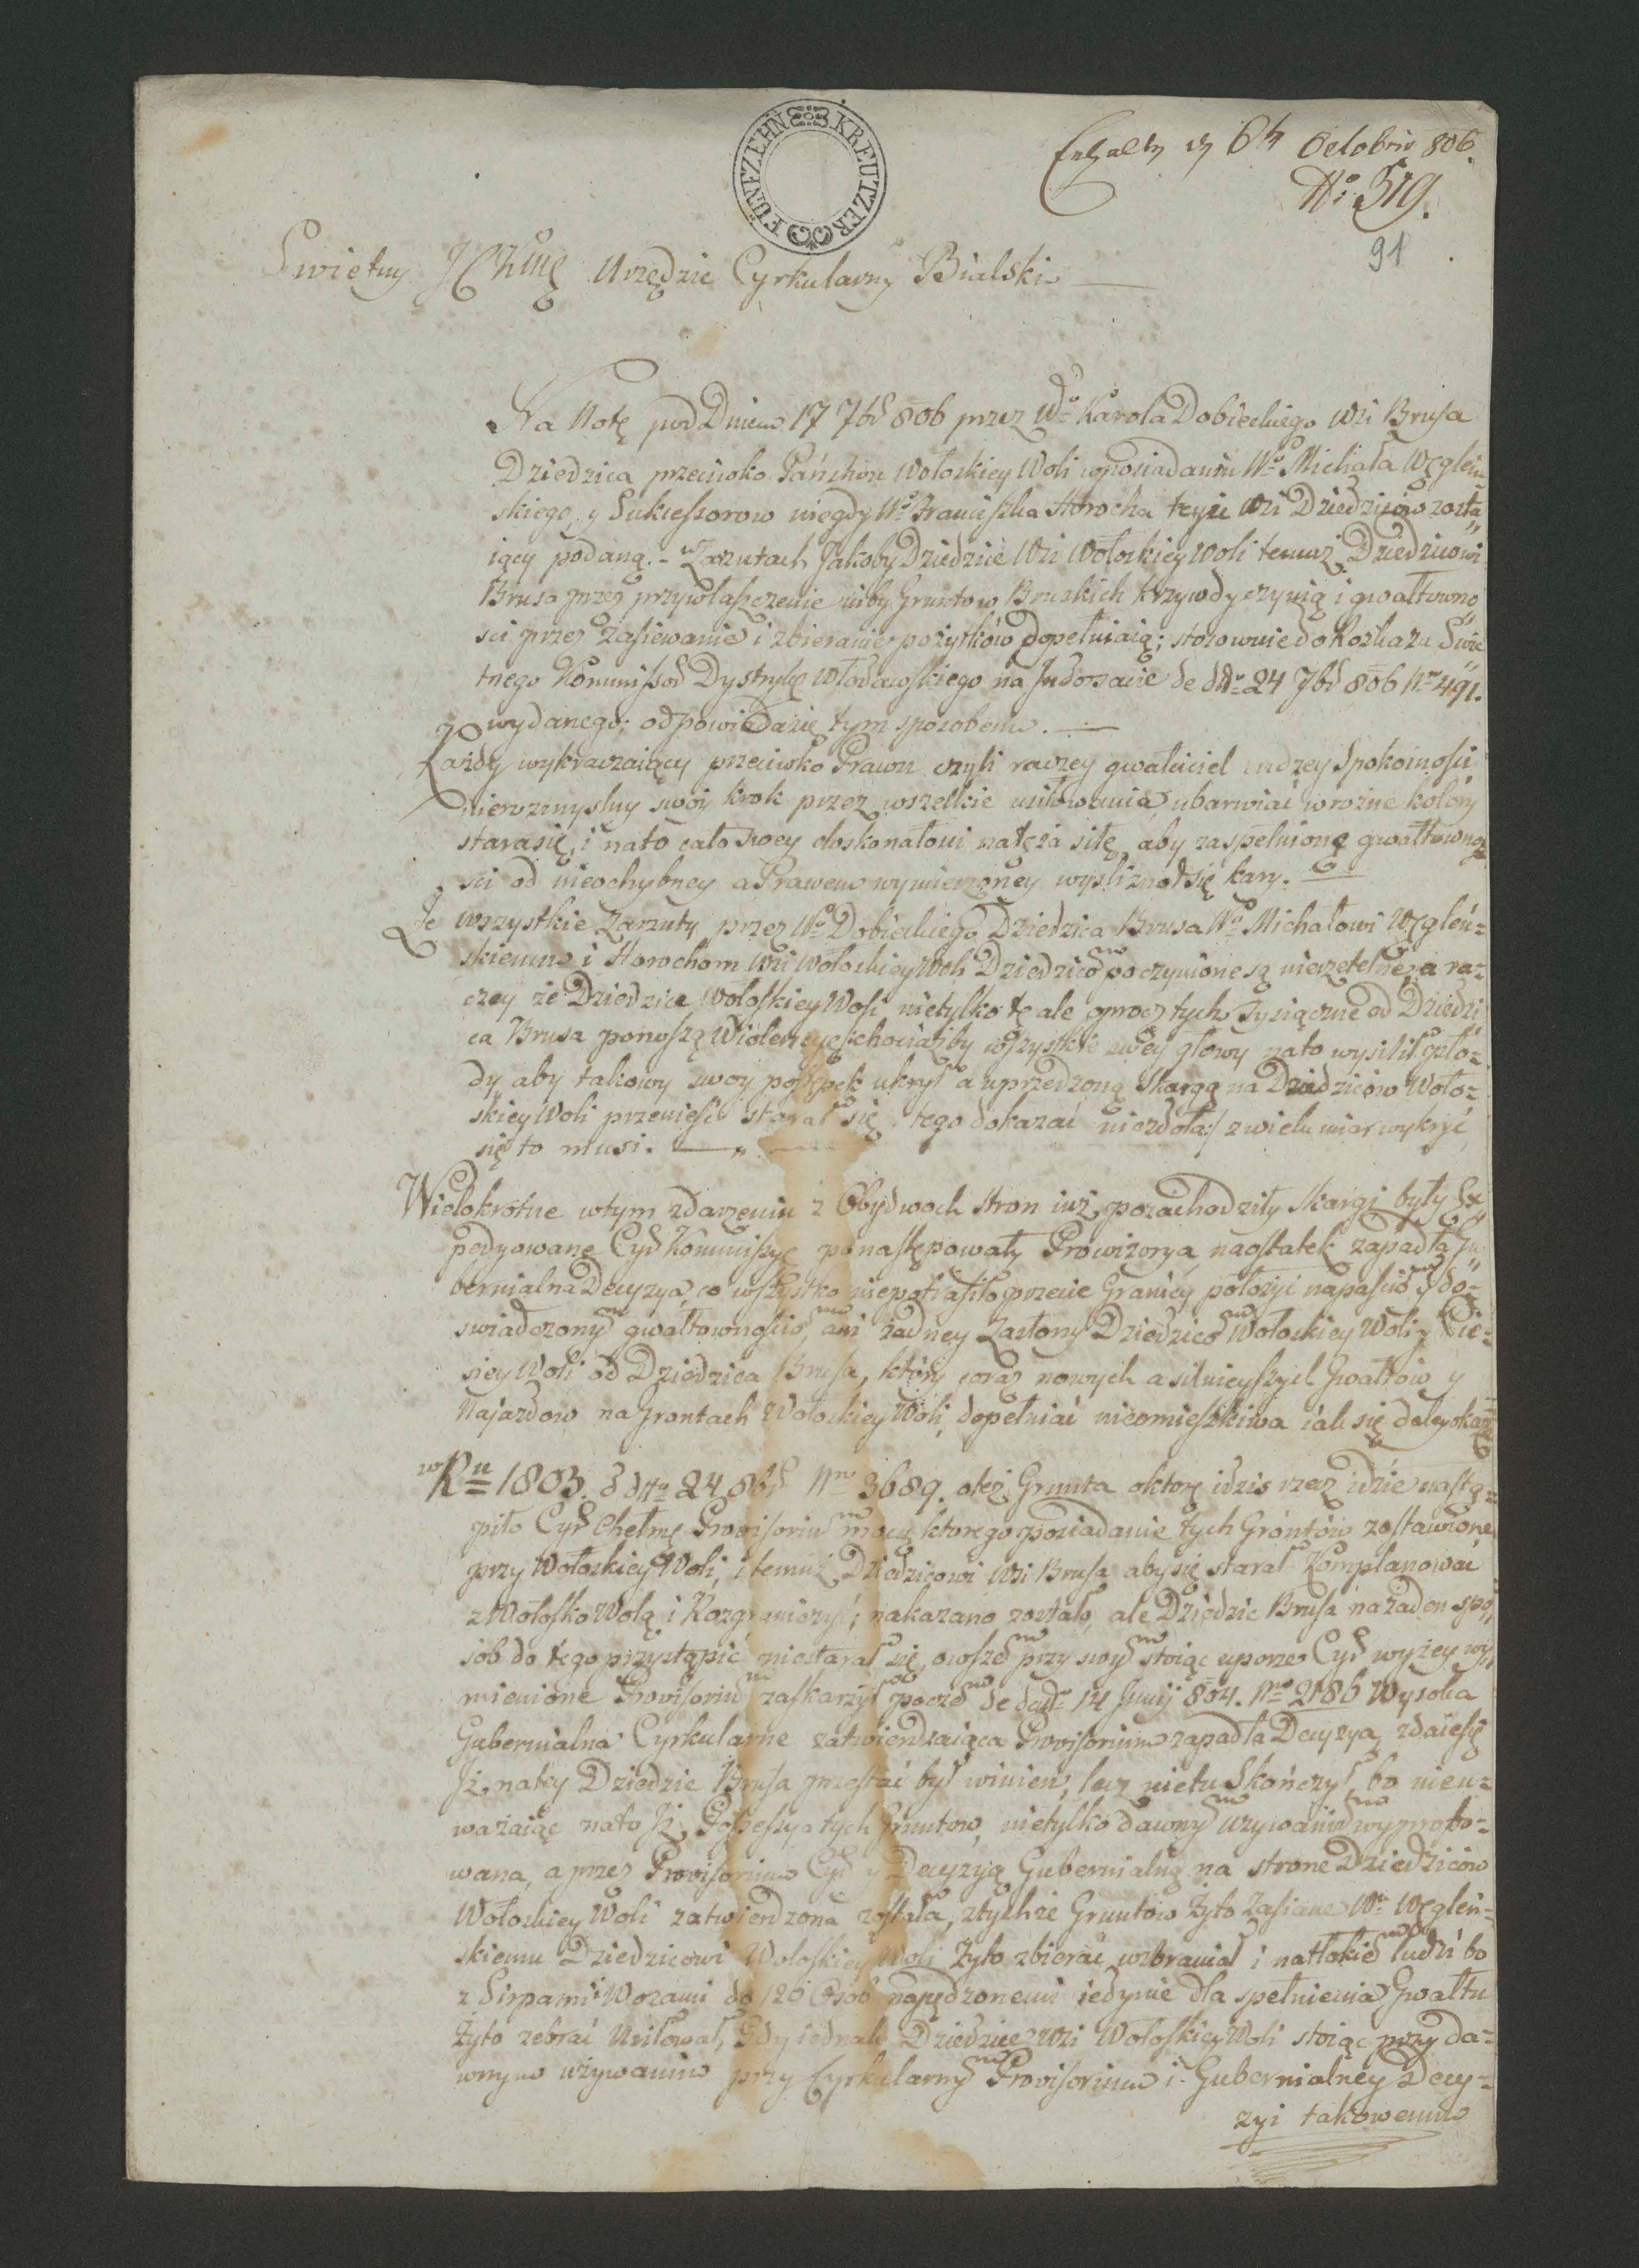 FÜNFZEHN KREUTZER
Erhalten 6t Octobris 806.
No: 519.
91
Swietny Urzędzie Cyrkularny Bialski
Na Notę pod Dniem 17 7br 806 przez Wo Karola Dobieckiego Wsi Brusa
Dziedzica przeciwko Państwu Wołoskiey Woli w posiadaniu Wo Michała Węgleiń
skiego, y Sukcessorow niegdy Wo Franciszka Horocha teyże Wsi Dziedziców zosta
iący podaną. - w Zarzutach Jakoby Dziedzice Wsi Wołoskiey Woli temuż Dziedzicowi
Brusa przez przywłaszczenie niby Gruntow Bruskich krzywdy czynią i gwałtowno
sci przez zasiewanie i zbieranie pożytków dopełniaią; stosownie do Rozkazu Świe
tnego Kommissar Dystryktu Włodawskiego na Indorsacie de dto 24 7br 806 Nro 491.
wydanego; odpowiada się tym sposobem. —
Każdy wykraczaiący przeciwko Prawu czyli raczey gwałciciel cudzey Spokoinosci
nierozmyslny swóy krok przez wszelkie usiłowania, ubarwiać w rożne kolory
stara się, i na to cało swey doskonałosci natęża siłę, aby za spełnionę gwałtowno
sci od nieochybney a Prawem wymierzoney wysliznoł się kary. —
Że wszystkie Zarzuty przez Wo Dobieckiego Dziedzica Brusa Wo Michałowi Węgleń-
skiemu i Horochom Wsi Wołoskiey Woli Dziedzicom poczynione są nierzetelne, a ra-
czey że Dziedzice Wołoskiey Woli nietylko te ale oprocz tych Tysiączne od Dziedzi
ca Brusa ponoszą Wiolencye, chociażby wszystkie swey głowy na to wysilił pło-
dy aby takowy swoy postępek ukrył a uprzedzoną Skargą na Dziedziców Woło-
skiey Woli przenieść starał się, tego dokazać niezdoła; z wielu miar wykryć
się to musi. —
Wielokrotne w tym zdarzeniu z Obydwoch stron iuż pozachodziły skargi były Ex
pedyowane Cyr Kommissye ponastępowały Prowizorya, naostatek zapadła Gu
bernialna Decyzya, co wszystko niepotrafiło przecie Granicy położyć napasciom y do-
swiadczonym gwałtownosciom, ani żadney Zasłony Dziedzicom Wołoskiey Woli y
siey Woli od Dziedzica Brusa, który coraz nowych a silnieyszych Gwałtów y
Najazdow na Grontach Wołoskiey Woli, dopełniać nieomieszkiwa iak się daley okaże
w Ru 1803. d dto 24 8br Nro 3689. oteż Grunta oktore idzis rzecz idzie nastą-
piło Cyr Chełmę Provisorium mocą ktorego posiadanie tych Gróntów zostawione
przy Wołoskiey Woli, i temuż Dziedzicowi Wsi Brusa aby się starał Komplanować
z Wołosko Wolą i Rozgraniczyć; nakazano zostało, ale Dziedzic Brusa na żaden spo
sób do tego przystąpić niestarał się, owszem przy swym stoiąc uporze Cyr wyżey wy
mienione Provisorium zaskarżył poczem de dato 14 Junij 804. Nro 2186 Wysoka
Gubernialna Cyrkularne zatwierdzaiąca Provisorium zapadła Decyzya, zdaie się
Iż na tey Dziedzic Brusa przestać był winien, lecz nietu Skończył, bo nieu-
ważaiąc na to Iż Possessya tych Gruntow, nietylko dawnym używaniem wyprobo-
wana, a przez Provisorium Cyr y Decyzyą Gubernialną na strone Dziedziców
Wołoskiey Woli zatwierdzona została, z tychże Gruntów Żyto Zasiane Wo Węgleń-
skiemu Dziedzicowi Wołoskiey Woli Żyto zbierać wzbraniał i natłokiem ludzi bo
z Sirpami i Wozami do 120 Osób napędzonemi iedynie dla spełnienia Gwałtu
Żyto zebrać Usiłował, Gdy iednak Dziedzice Wsi Wołoskiey Woli stoiąc przy da-
wnym używaniu przy Cyrkularnym Provisorium i Gubernialney Decy-
zyi takowemu